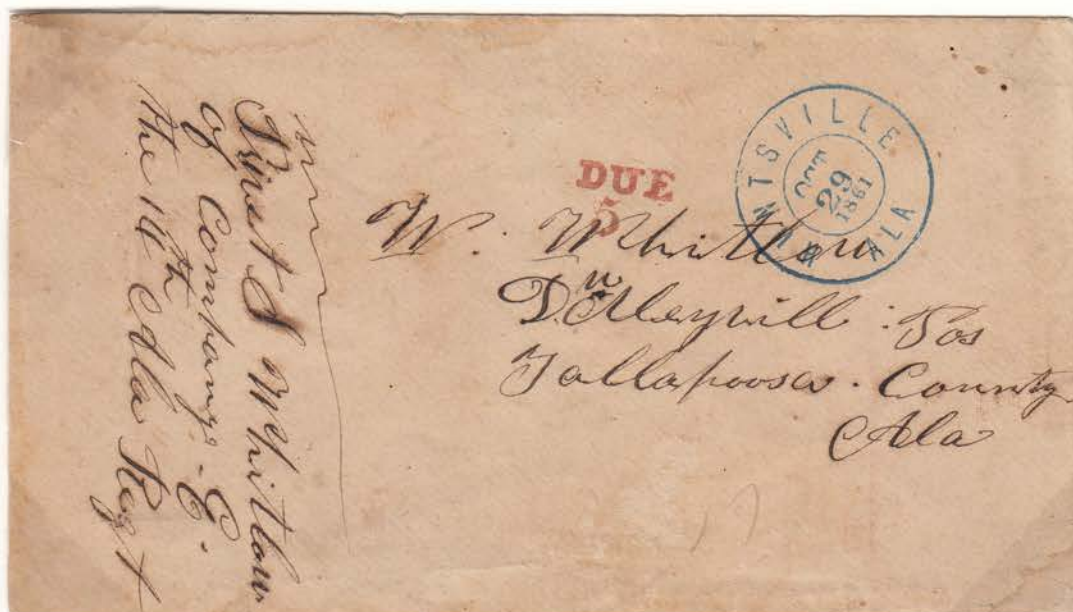 Privat S Whitlow
of Company. E.
the 14th Ala Regt
DUE
5
HUNTSVILLE ALA
OCT
29
1861
W. Whitlow
Dudleyvill : Pos
Tallapoosa. County
Ala